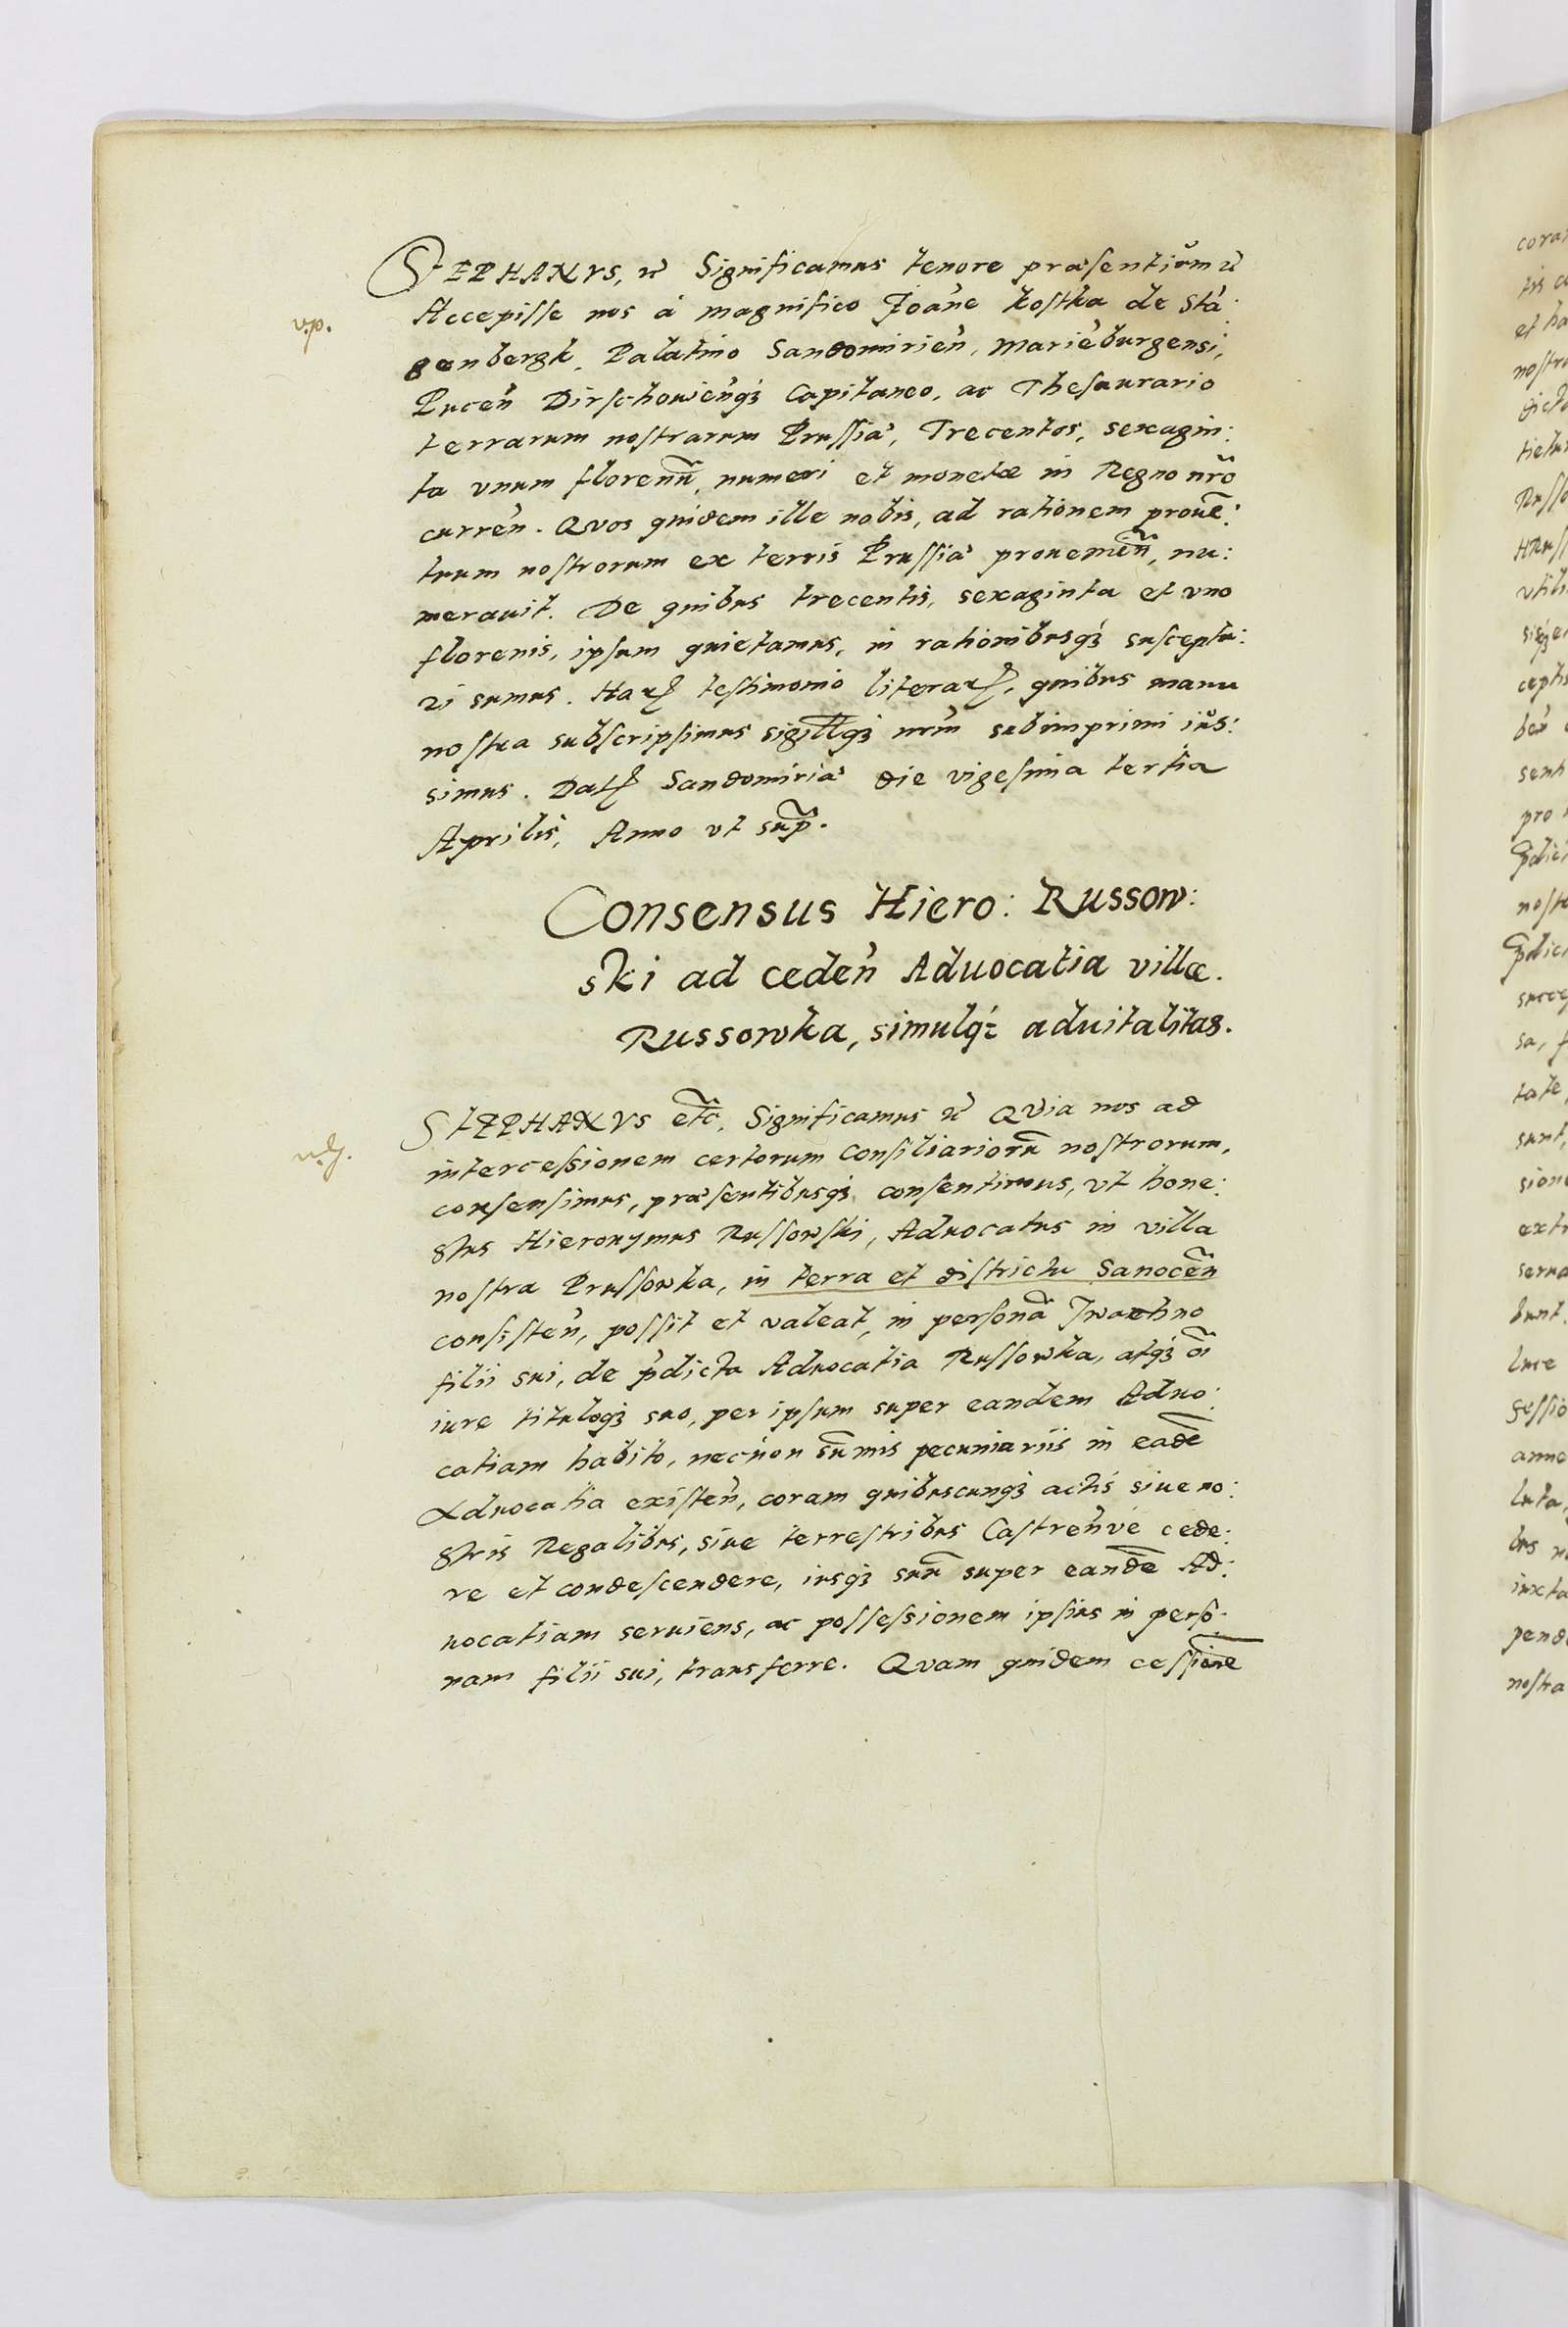 STEPHANVS, etc Significamus tenore præsentium etc
v.p.
Accepisse nos à magnifico Joāne Kostka de Stā:
genbergk, Palatino Sandomirień, Marieburgensi,
Pucen̄ Dirschouien̄q₃ Capitaneo, ac Thesaurario
terrarum nostrarum Prussiæ, Trecentos, sexagin:
ta vnum florenū, numeri et monetæ in Regno nr̄o
curren̄. Quos quidem ille nobis, ad rationem prouē:
tuum nostrorum ex terris Prussiæ prouenien̄, nu:
merauit. De quibus trecentis, sexaginta et vno
florenis, ipsum quietamus, in rationibusq₃ susceptu:
ri sumus. Harꝝ testimonio literarꝝ, quibus manu
nostra subscripsimus sigillq₃ nrm̄ subimprimi ius:
simus. Datꝭ Sandomiriæ die vigesima tertia
Aprilis, Anno vt sup̄.
Consensus Hiero: Russow:
ski ad ceden̄ Aduocatia villæ.
Russowka, simulq₃ aduitalitas.
STEPHANVS etc̄. Significamus etc Quia nos ad
intercessionem certorum Consiliariorū nostrorum,
consensimus, præsentibusq₃ consentimus, vt hone:
stus Hieronymus Russowski, Aduocatus in villa
nostra Prussowka, in terra et districtu Sanocen̄
consisten̄, possit et valeat, in personā Iwachno
filii sui, de p̄dicta Aduocatia Russowka, atq₃ oī
iure tituloq₃ suo, per ipsum super eandem Aduo:
catiam habito, necnon sūmis pecuniariis in eadē
Aduocatia existen̄, coram quibuscunq₃ actis siue no:
stris Regalibus, siue terrestribus Castren̄ve cede:
re et condescendere, iusq₃ suū super eandē Ad:
uocatiam seruiens, ac possessionem ipsius in perso:
nam filii sui, transferre. Quam quidem cessionē